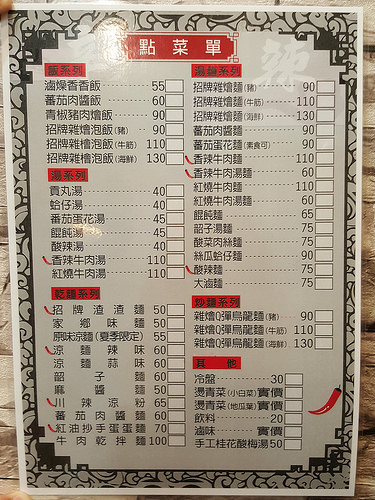 點菜單
飯系列
滷燥香香飯 55
蕃茄肉醬飯 60
青椒豬肉燴飯 90
招牌雜燴泡飯(豬) 90
招牌雜燴泡飯(牛筋) 110
招牌雜燴泡飯(海鮮) 130
湯系列
貢丸湯 40
蛤仔湯 40
蕃茄蛋花湯 45
餛飩湯 45
酸辣湯 40
香辣牛肉湯 110
紅燒牛肉湯 110
乾麵系列
招牌渣渣麵 50
家鄉味麵 50
原味涼麵(夏季限定) 55
涼麵辣味 60
涼麵蒜味 60
餡子麵 60
麻醬麵 50
川辣涼粉 65
蕃茄肉醬麵 60
紅油抄手蛋蛋麵 70
牛肉乾拌麵 100
湯麵系列
招牌雜燴麵(豬) 90
招牌雜燴麵(牛筋) 110
招牌雜燴麵(海鮮) 130
蕃茄肉醬麵 90
蕃茄蛋花麵(素食可) 90
香辣牛肉麵 110
香辣牛肉湯麵 60
紅燒牛肉麵 110
紅燒牛肉湯麵 60
餛飩麵 65
餡子湯麵 75
酸菜肉絲麵 75
絲瓜蛤仔麵 90
酸辣麵 75
大滷麵 75
炒麵系列
雜燴Q彈烏龍麵(豬) 90
雜燴Q彈烏龍麵(牛筋) 110
雜燴Q彈烏龍麵(海鮮) 130
其他
冷盤 30
燙青菜(小白菜) 實價
燙青菜(地瓜葉) 實價
飲料 20
滷味 實價
手工桂花酸梅湯 50